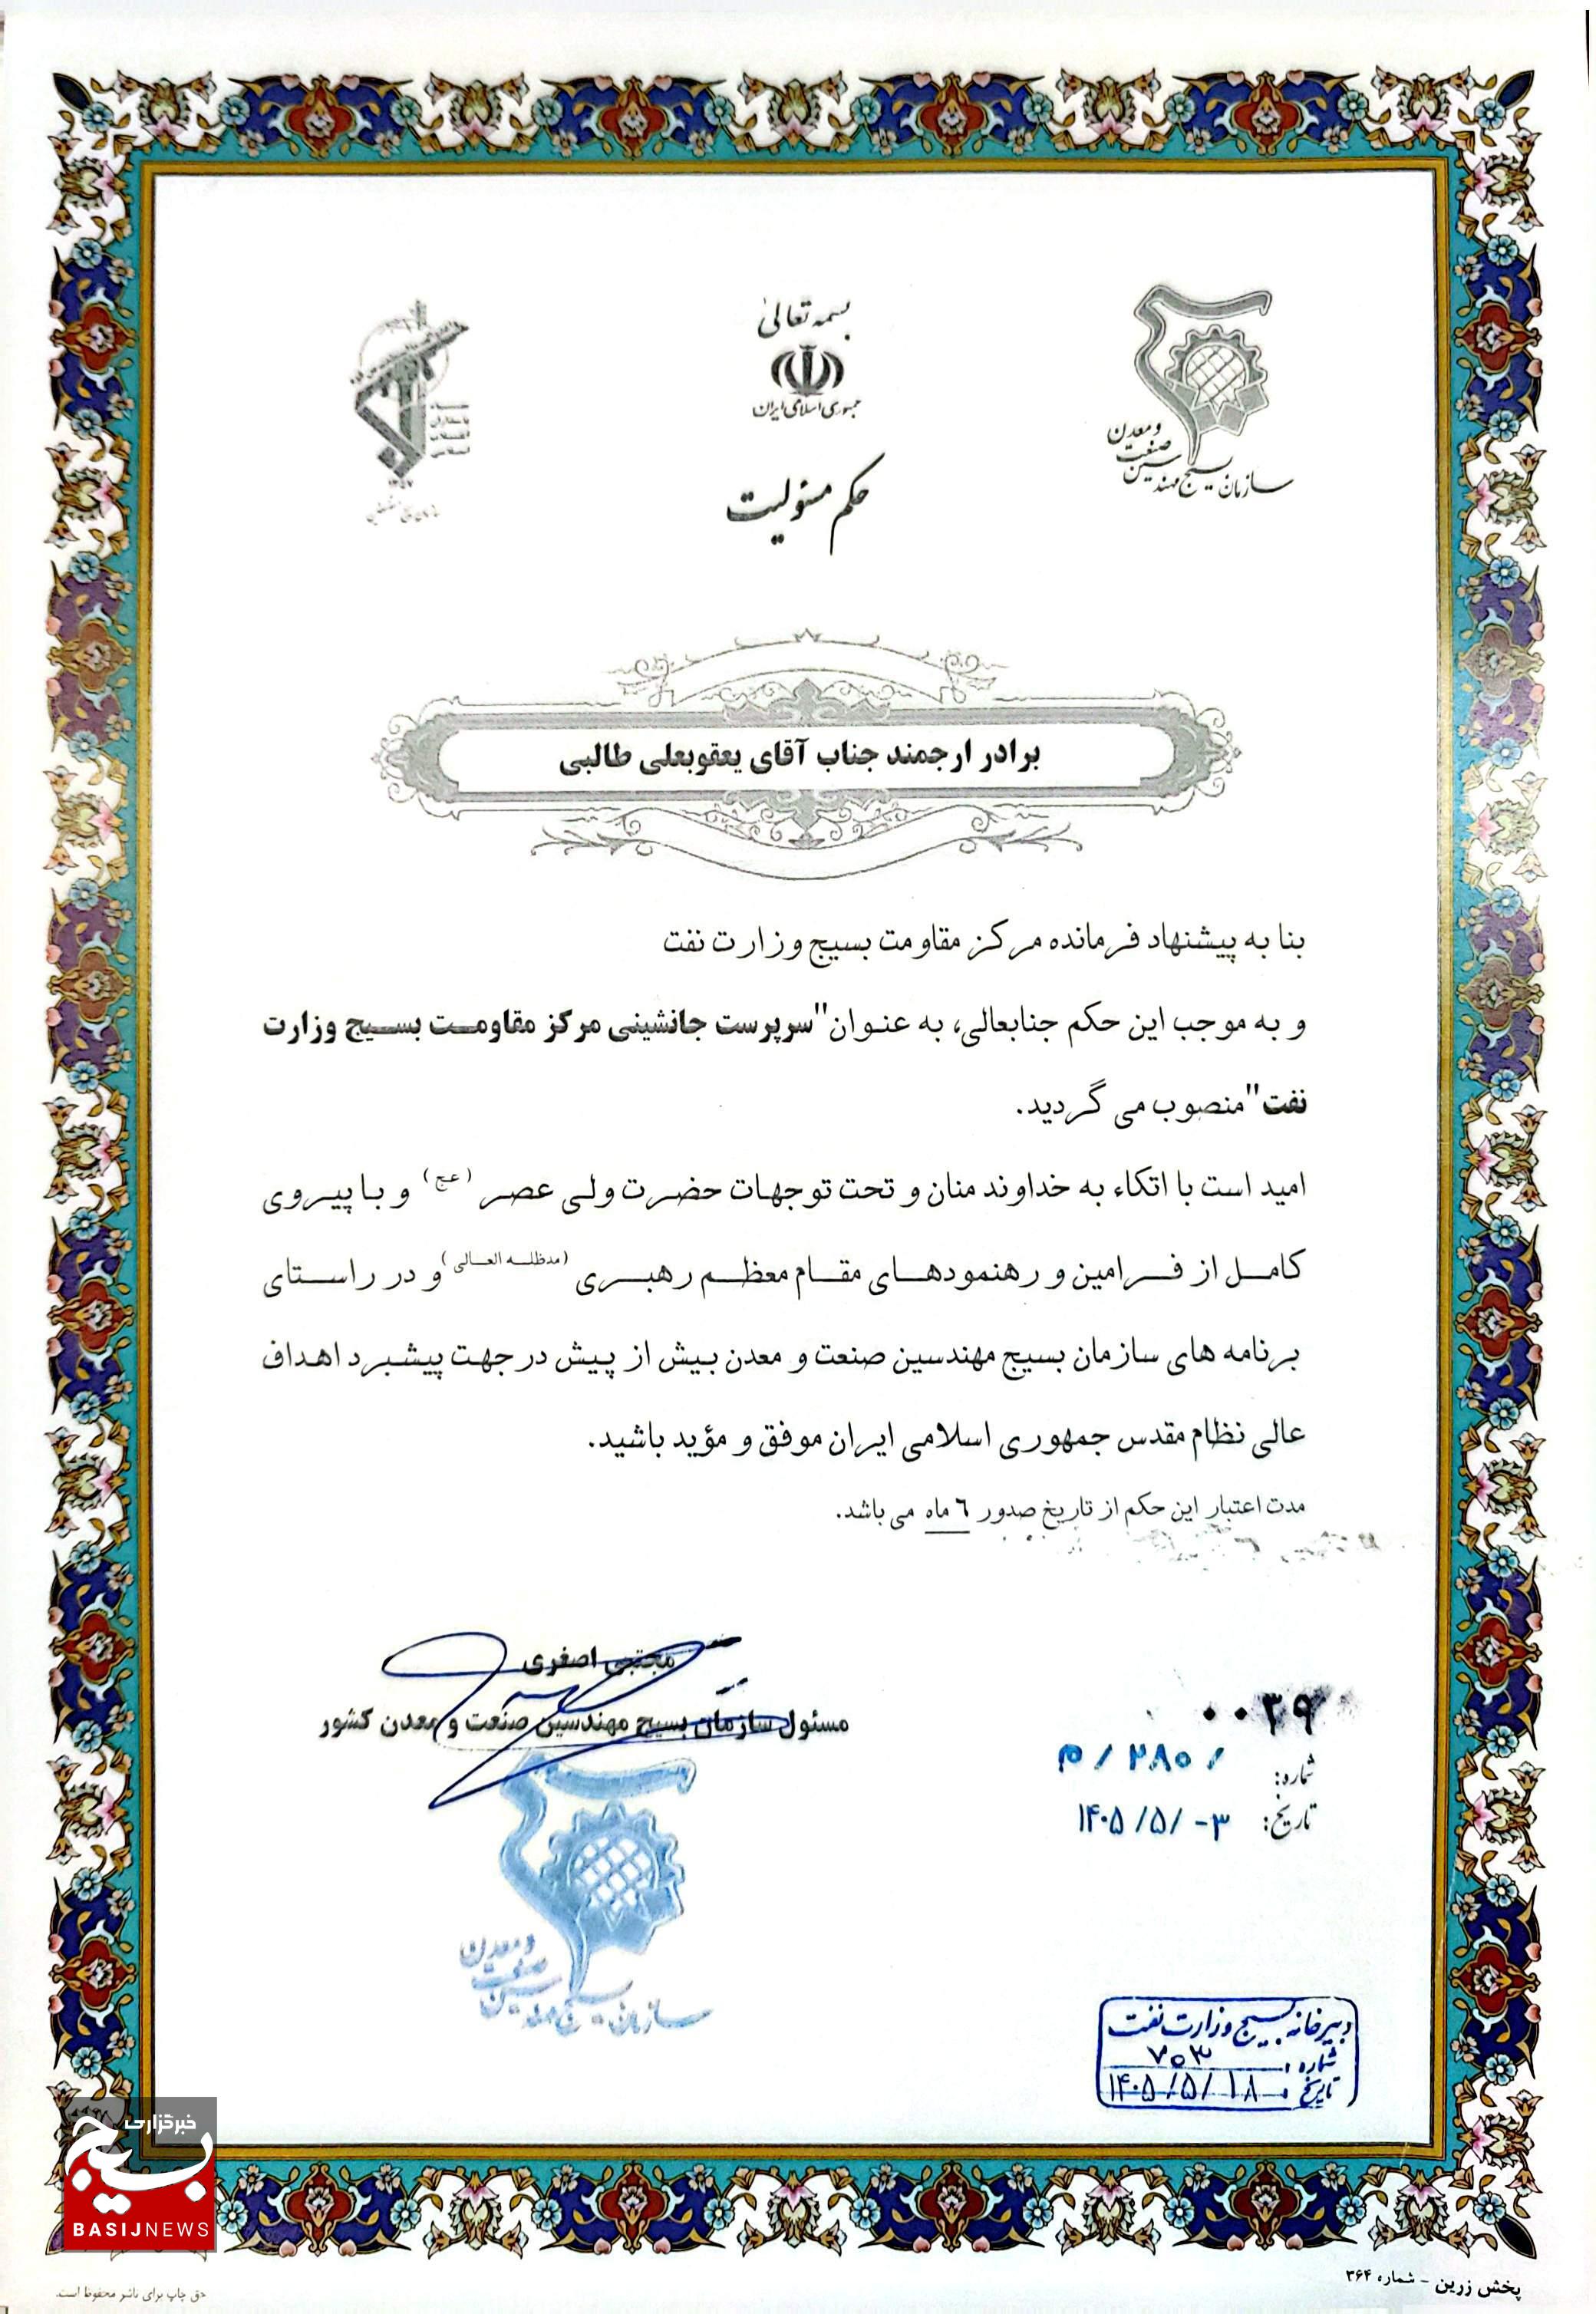 بسمه تعالی
جمهوری اسلامی ایران
و معدن
صنعت
سازمان بسیج مهندسین
حکم مسئولیت
برادر ارجمند جناب آقای یعقوبعلی طالبی
بنا به پیشنهاد فرمانده مرکز مقاومت بسیج وزارت نفت
و به موجب این حکم جنابعالی، به عنوان "سرپرست جانشینی مرکز مقاومت بسیج وزارت
نفت" منصوب می گردید.
امید است با اتکاء به خداوند منان و تحت توجهات حضرت ولی عصر (عج) و با پیروی
کامل از فرامین و رهنمودهای مقام معظم رهبری (مدظله العالی) و در راستای
برنامه های سازمان بسیج مهندسین صنعت و معدن بیش از پیش در جهت پیشبرد اهداف
عالی نظام مقدس جمهوری اسلامی ایران موفق و مؤید باشید.
مدت اعتبار این حکم از تاریخ صدور ٦ ماه می باشد.
مجتبی اصغری
مسئول سازمان بسیج مهندسین صنعت و معدن کشور
۰۰۳۹
شماره: / ۲۸۰ / م
تاریخ: ۱۴۰۵/۵/-۳
و معدن
صنعت
سازمان بسیج مهندسین
دبیرخانه بسیج وزارت نفت
شماره: ۷۰۳
تاریخ: ۱۴۰۵/۵/۱۸
خبرگزاری
بسیج
BASIJNEWS
پخش زرین - شماره ۳۶۴
حق چاپ برای ناشر محفوظ است.